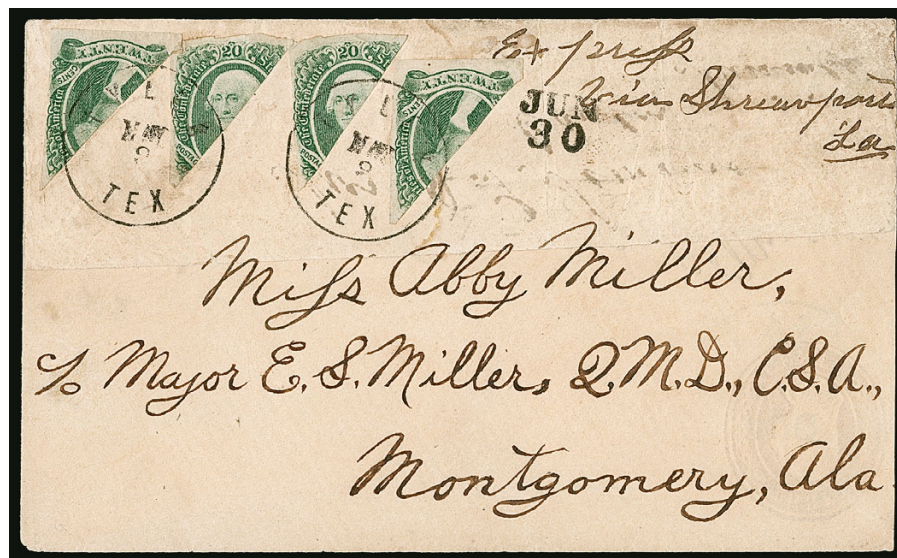 TWENTY
CENTS
20
20
TWENTY
TEX
TEX
JUN
30
Express
via Shreveport
La
Miss Abby Miller,
c/o Major E. S. Miller, Q.M.D., C.S.A.,
Montgomery, Ala.